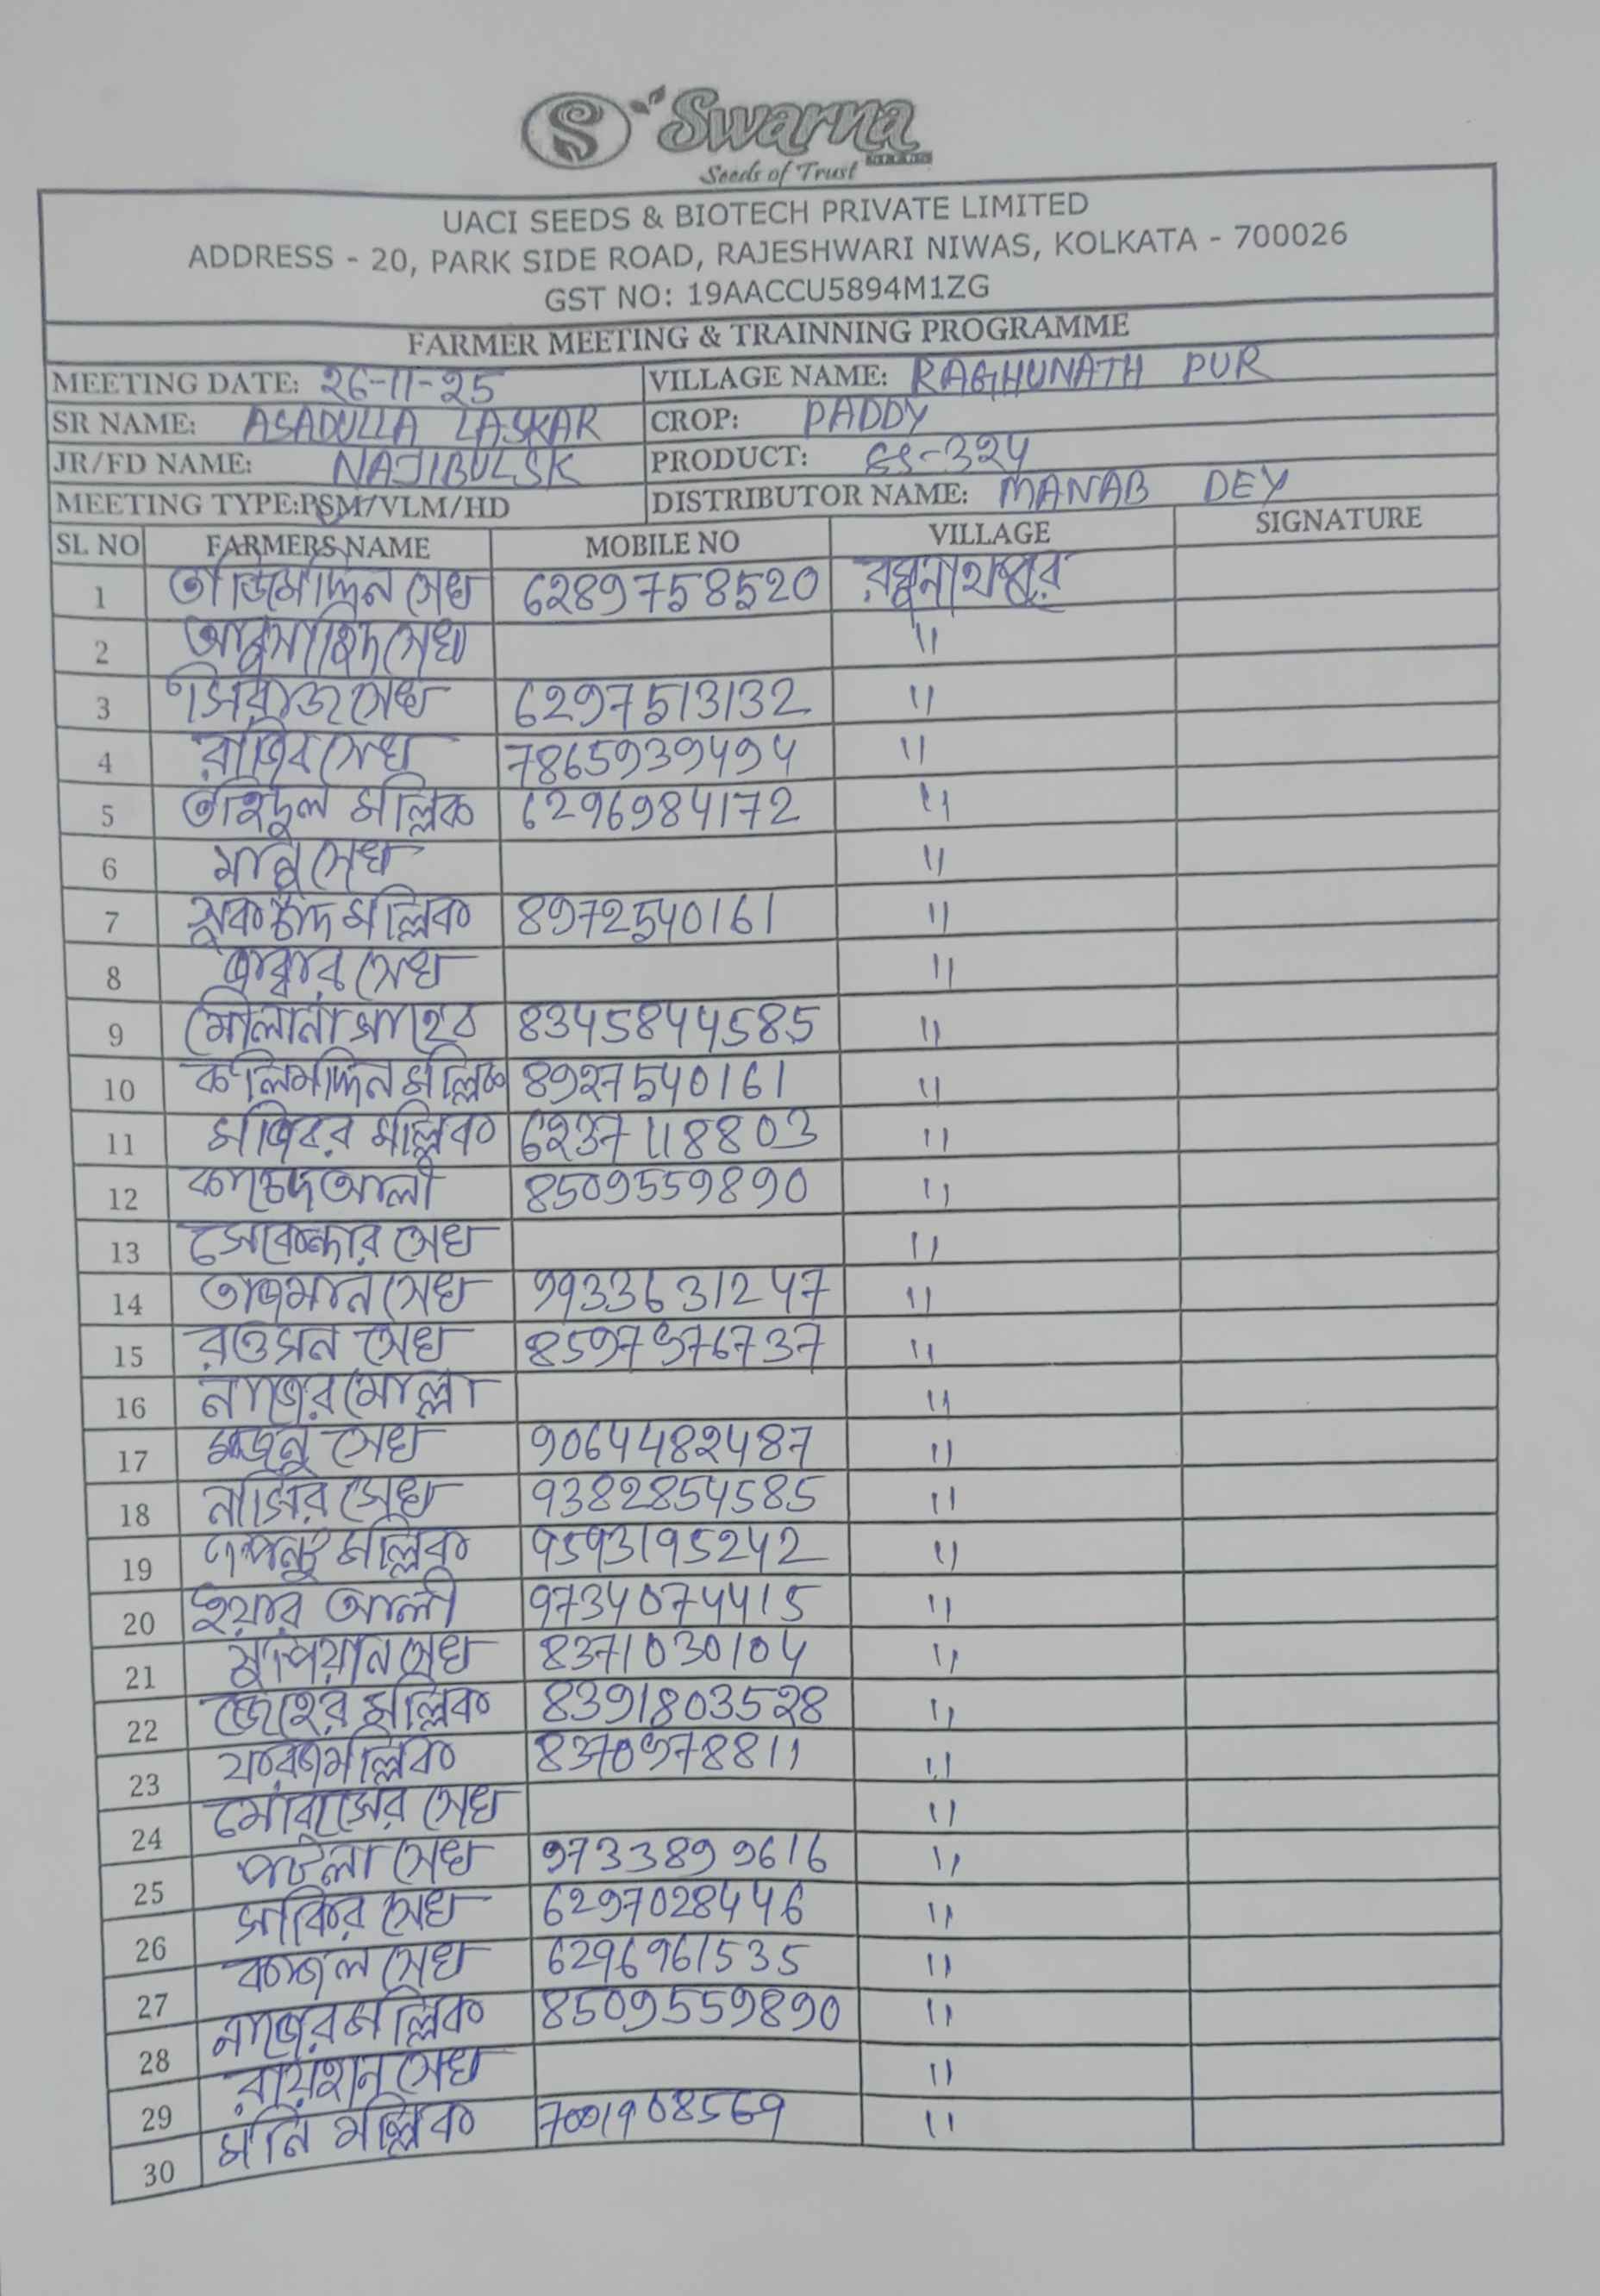 Swarna
Seeds of Trust
UACI SEEDS & BIOTECH PRIVATE LIMITED
ADDRESS - 20, PARK SIDE ROAD, RAJESHWARI NIWAS, KOLKATA - 700026
GST NO: 19AACCU5894M1ZG
FARMER MEETING & TRAINNING PROGRAMME
MEETING DATE: 26-11-25 VILLAGE NAME: RAGHUNATH PUR
SR NAME: ASADULLA LASKAR CROP: PADDY
JR/FD NAME: NAJIBUL SK PRODUCT: SS-324
MEETING TYPE:PSM/VLM/HD DISTRIBUTOR NAME: MANAB DEY
SL NO FARMERS NAME MOBILE NO VILLAGE SIGNATURE
1 তাজিমদ্দিন সেখ 6289758520 রঘুনাথপুর
2 সেখ "
3 সিরাজ সেখ 6297513132 "
4 রাজিব সেখ 7865939494 "
5 তহিদুল মল্লিক 6296984172 "
6 মান্নু সেখ "
7 মল্লিক 8972540161 "
8 জাব্বার সেখ "
9 মৌলানা সাহেব 8345844585 "
10 কলিমদ্দিন মল্লিক 8927540161 "
11 মজিবর মল্লিক 6237118803 "
12 আলী 8509559890 "
13 সেকেন্দার সেখ "
14 সেখ 9933631247 "
15 রওসন সেখ 8597976737 "
16 নাজের মোল্লা "
17 মজনু সেখ 9064482487 "
18 নাসির সেখ 9382854585 "
19 মল্লিক 9593195242 "
20 ইয়ার আলী 9734074415 "
21 সুপিয়ান সেখ 8371030104 "
22 জেহের মল্লিক 8391803528 "
23 মল্লিক 8370978811 "
24 মোবাসের সেখ "
25 পটলা সেখ 9733899616 "
26 সাকির সেখ 6297028446 "
27 কাজল সেখ 6296961535 "
28 নাজের মল্লিক 8509559890 "
29 রায়হান সেখ "
30 মনি মল্লিক 7001908569 "